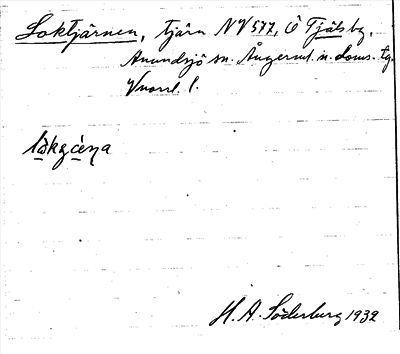 Loktjärnen, tjärn NV 577, Ö Tjälsbg,
Anundsjö sn. Ångerml. n. doms. tg.
Vnorrl. l.
H. A. Söderberg 1932